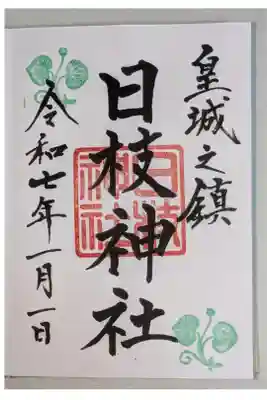 皇城之鎮
日枝神社
日枝
神社
令和七年一月一日